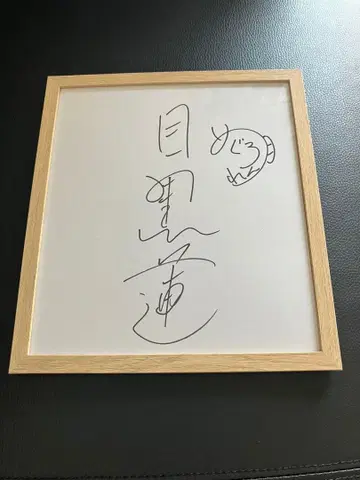 目黒蓮
めぐろ
れん